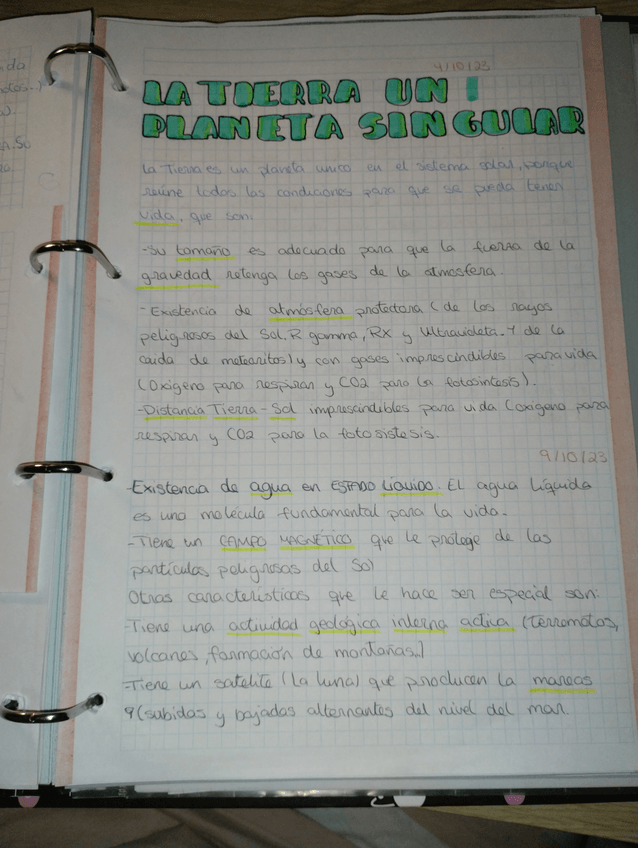 4/10/23
LA TIERRA UN
PLANETA SINGULAR
La Tierra es un planeta unico en el sistema solar, porque
reúne todas las condiciones para que se pueda tener
vida, que son:
-Su tamaño es adecuado para que la fuerza de la
gravedad retenga los gases de la atmosfera.
-Existencia de atmósfera protectora (de los rayos
peligrosos del Sol, R gamma, RX y Ultravioleta. Y de la
caida de meteoritos) y con gases imprescindibles para vida
(Oxigeno para respirar y CO2 para la fotosintesis).
-Distancia Tierra-Sol imprescindibles para vida (oxigeno para
respirar y CO2 para la fotosistesis.
9/10/23
-Existencia de agua en ESTADO LÍQUIDO. El agua líquida
es una molécula fundamental para la vida.
-Tiene un CAMPO MAGNÉTICO que le prótege de las
partículas peligrosas del Sol
Otras características que le hace ser especial son:
-Tiene una actividad geológica interna activa (terremotos,
volcanes, formación de montañas..)
-Tiene un satelite (La luna) que producen la mareas
(subidas y bajadas alternantes del nivel del mar.